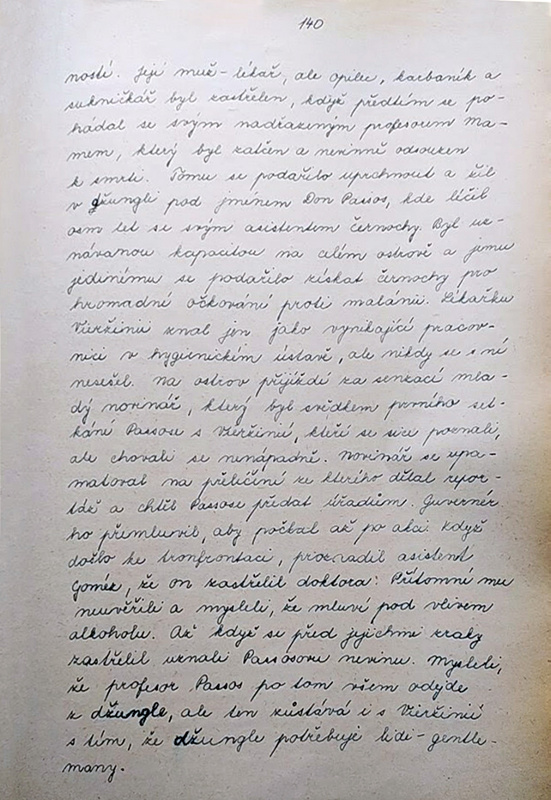 140
ností. Její muž-lékař, ale opilec, karbaník a
sukničkář byl zastřelen, když předtím se po-
hádal se svým nadřazeným profesorem Ma-
mem, který byl zatčen a nevinně odsouzen
k smrti. Tomu se podařilo uprchnout a žil
v džungli pod jménem Don Passos, kde léčil
osm let se svým asistentem černochy. Byl uz-
návanou kapacitou na celém ostrově a jemu
jedinému se podařilo získat černochy pro
hromadné očkování proti malárii. Lékařku
Vieržinii znal jen jako vynikající pracov-
nici v hygienickém ústavě, ale nikdy se s ní
nesešel. Na ostrov přijíždí za senzací mla-
dý novinář, který byl svědkem prvního set-
kání Passose s Vieržinií, kteří se sice poznali,
ale chovali se nenápadně. Novinář se upa-
matoval na přelíčení ze kterého dělal repor-
táž a chtěl Passose předat úřadům. Guvernér
ho přemluvil, aby počkal až po akci. Když
došlo ke tronfrontaci, prozradil asistent
Goméz, že on zastřelil doktora. Přítomní mu
neuvěřili a mysleli, že mluví pod vlivem
alkoholu. Až když se před jejichmi zraky
zastřelil uznali Passosovu nevinu. Mysleli,
že profesor Passos po tom všem odejde
z džungle, ale ten zůstává i s Vieržinií
s tím, že džungle potřebuje lidi-gentle-
many.